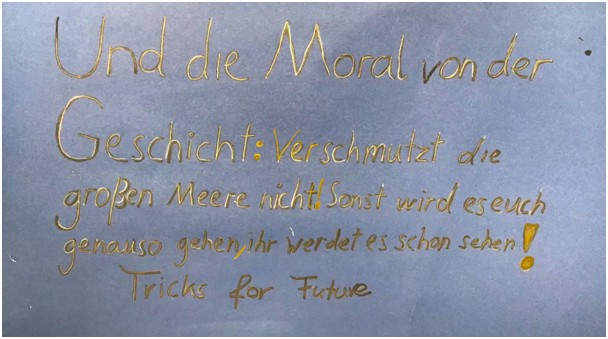 Und die Moral von der
Geschicht: Verschmutzt die
großen Meere nicht! Sonst wird es euch
genauso gehen, ihr werdet es schon sehen!
Tricks for Future